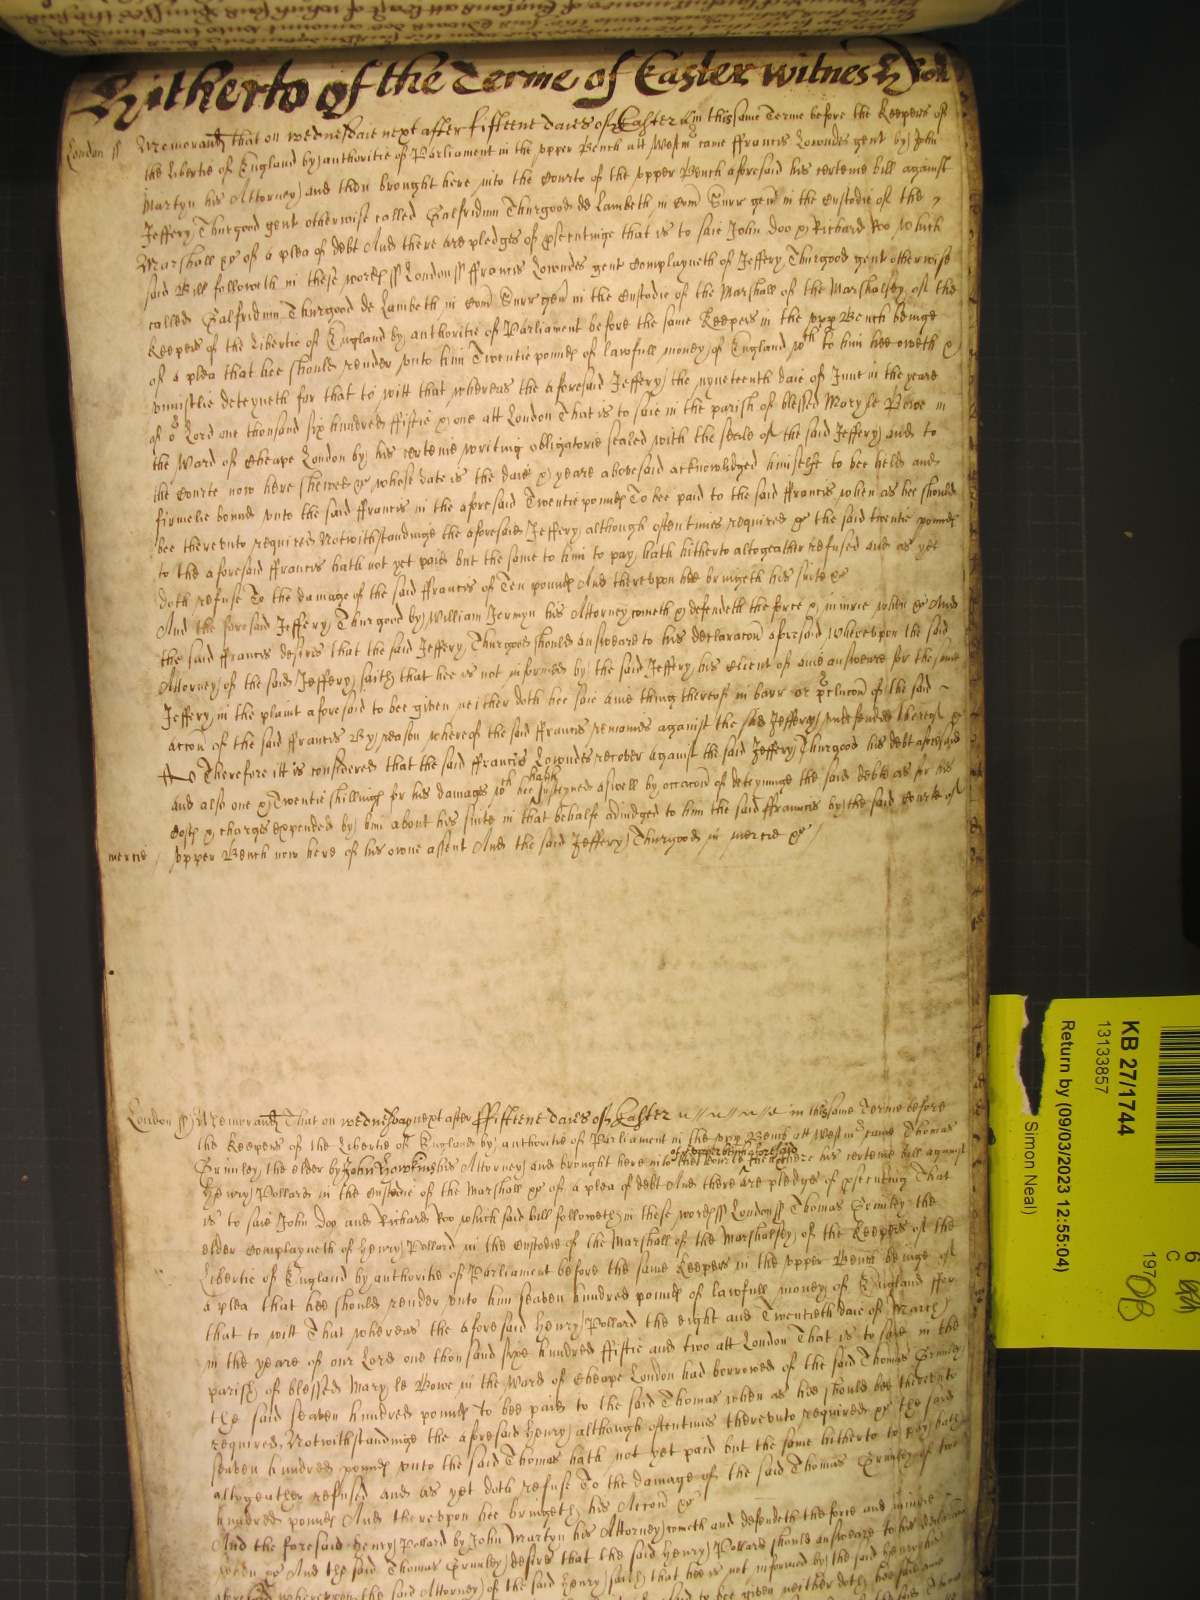 Hitherto of the Terme of Easter witnes H Roll
London ss Memorand That on wednesdaie next after fifteene daies of Easter in this same Terme before the Keepers of
the Libertie of England by authoritie of Parliament in the upper Bench att Westmr came Ffrancis Lowndes gent by John
Martyn his Attorney and then brought here into the Courte of the upper Bench aforesaid his certeine bill against
Jeffery Thurgood gent otherwise called Galfridum Thurgood de Lambeth in Com Surr gen in the Custodie of the
Marshall &c of a plea of debt And there are pledges of psecutinge that is to saie John Doo & Richard Roo which
said Bill followeth in these words ss London ss Ffrancis Lowndes gent Complayneth of Jeffery Thurgood gent otherwise
called Galfridum Thurgood de Lambeth in Com Surr gen in the Custodie of the Marshall of the Marshalsey of the
Keepers of the Libertie of England by authoritie of Parliament before the same Keepers in the upp Bench beinge
of a plea that hee should render unto him Twentie pounds of lawfull money of England wch to him hee oweth &
uniustlie deteyneth for that to witt that whereas the aforesaid Jeffery the nyneteenth daie of June in the yeare
of or Lord one thousand six hundred fiftie & one att London That is to saie in the parish of blessed Mary le Bowe in
the Ward of Cheape London by his certeine writing obligatorie sealed with the seale of the said Jeffery and to
the Courte now here shewed &c whose date is the daie & yeare abovesaid acknowledged himselfe to bee held and
firmelie bound unto the said Ffrancis in the aforesaid Twentie pounds To bee paid to the said Ffrancis when as hee should
bee thereunto required Notwithstandinge the aforesaid Jeffery although oftentimes required &c the said twentie pounds
to the aforesaid Ffrancis hath not yet paid but the same to him to pay hath hitherto altogeather refused and as yet
doth refuse To the damage of the said Ffrancis of Ten pounds And thereupon hee bringeth his suite &c
And the foresaid Jeffery Thurgood by William Jermyn his Attorney cometh & defendeth the force & iniurie when &c And
the said Ffrancis desires that the said Jeffery Thurgood should answeare to his declaracon aforesaid Whereupon the said
Attorney of the said Jeffery saith that hee is not informed by the said Jeffery his Client of anie answeare for the same
Jeffery in the plaint aforesaid to bee given neither doth hee saie anie thing thereof in barr or pclucon of the said
accon of the said Ffrancis By reason whereof the said Ffrancis remaines against the said Jeffery undefended thereof &c
Therefore itt is considered that the said Ffrancis Lowndes recover against the said Jeffery Thurgood his debt aforesaid
and also one & Twentie shillings for his damages wch hee hath susteyned aswell by occacon of deteyninge the said debt as for his
Costs & charges expended by him about his suite in that behalfe adiudged to him the said Ffrancis by the said Courte of
mercie upper Bench now here of his owne assent And the said Jeffery Thurgood in mercie &c
London ss Memorand That on wednesday next after Ffifteene daies of Easter in this same Terme before
the Keepers of the Libertie of England by authoritie of Parliament in the upp Bench att Westmr came Thomas
of upper bench aforesaid
Grimley the elder by John Hawkins his Attorney and brought here into the Court then there his certeine bill against
Henry Pollard in the Custodie of the Marshall &c of a plea of debt And there are pledges of psecuting That
is to saie John Doo and Richard Roo which said bill followeth in these words ss London ss Thomas Grimley the
elder Complayneth of Henry Pollard in the Custodie of the Marshall of the Marshalsey of the Keepers of the
Libertie of England by authoritie of Parliament before the same Keepers in the upper Bench beinge of
a plea that hee should render unto him seaven hundred pounds of lawfull money of England Ffor
that to witt That whereas the aforesaid Henry Pollard the eight and Twentieth daie of March
in the yeare of our Lord one thousand sixe hundred fiftie and two att London That is to saie in the
parish of blessed Mary le Bowe in the Ward of Cheape London had borrowed of the said Thomas Grimley
the said seaven hundred pounds to bee paid to the said Thomas when as hee should bee thereunto
required, Notwithstandinge the aforesaid Henry although oftentimes thereunto required &c the said
seaven hundred pounds unto the said Thomas hath not yet paid but the same hitherto to pay hath
altogeather refused and as yet doth refuse To the damage of the said Thomas Grimley of two
hundred pounds And thereupon hee bringeth his Accon &c
And the foresaid Henry Pollard by John Martyn his Attorney cometh and defendeth the force and iniurie
when &c And the said Thomas Grimley desires that the said Henry Pollard should answeare to his declaracon
aforesaid whereupon the said Attorney of the said Henry saith that hee is not informed by the said Henry his
to bee given neither doth hee saie anie
KB 27/1744
13133857
Return by (09/03/2023 12:55:04)
Simon Neal)
6
C
197